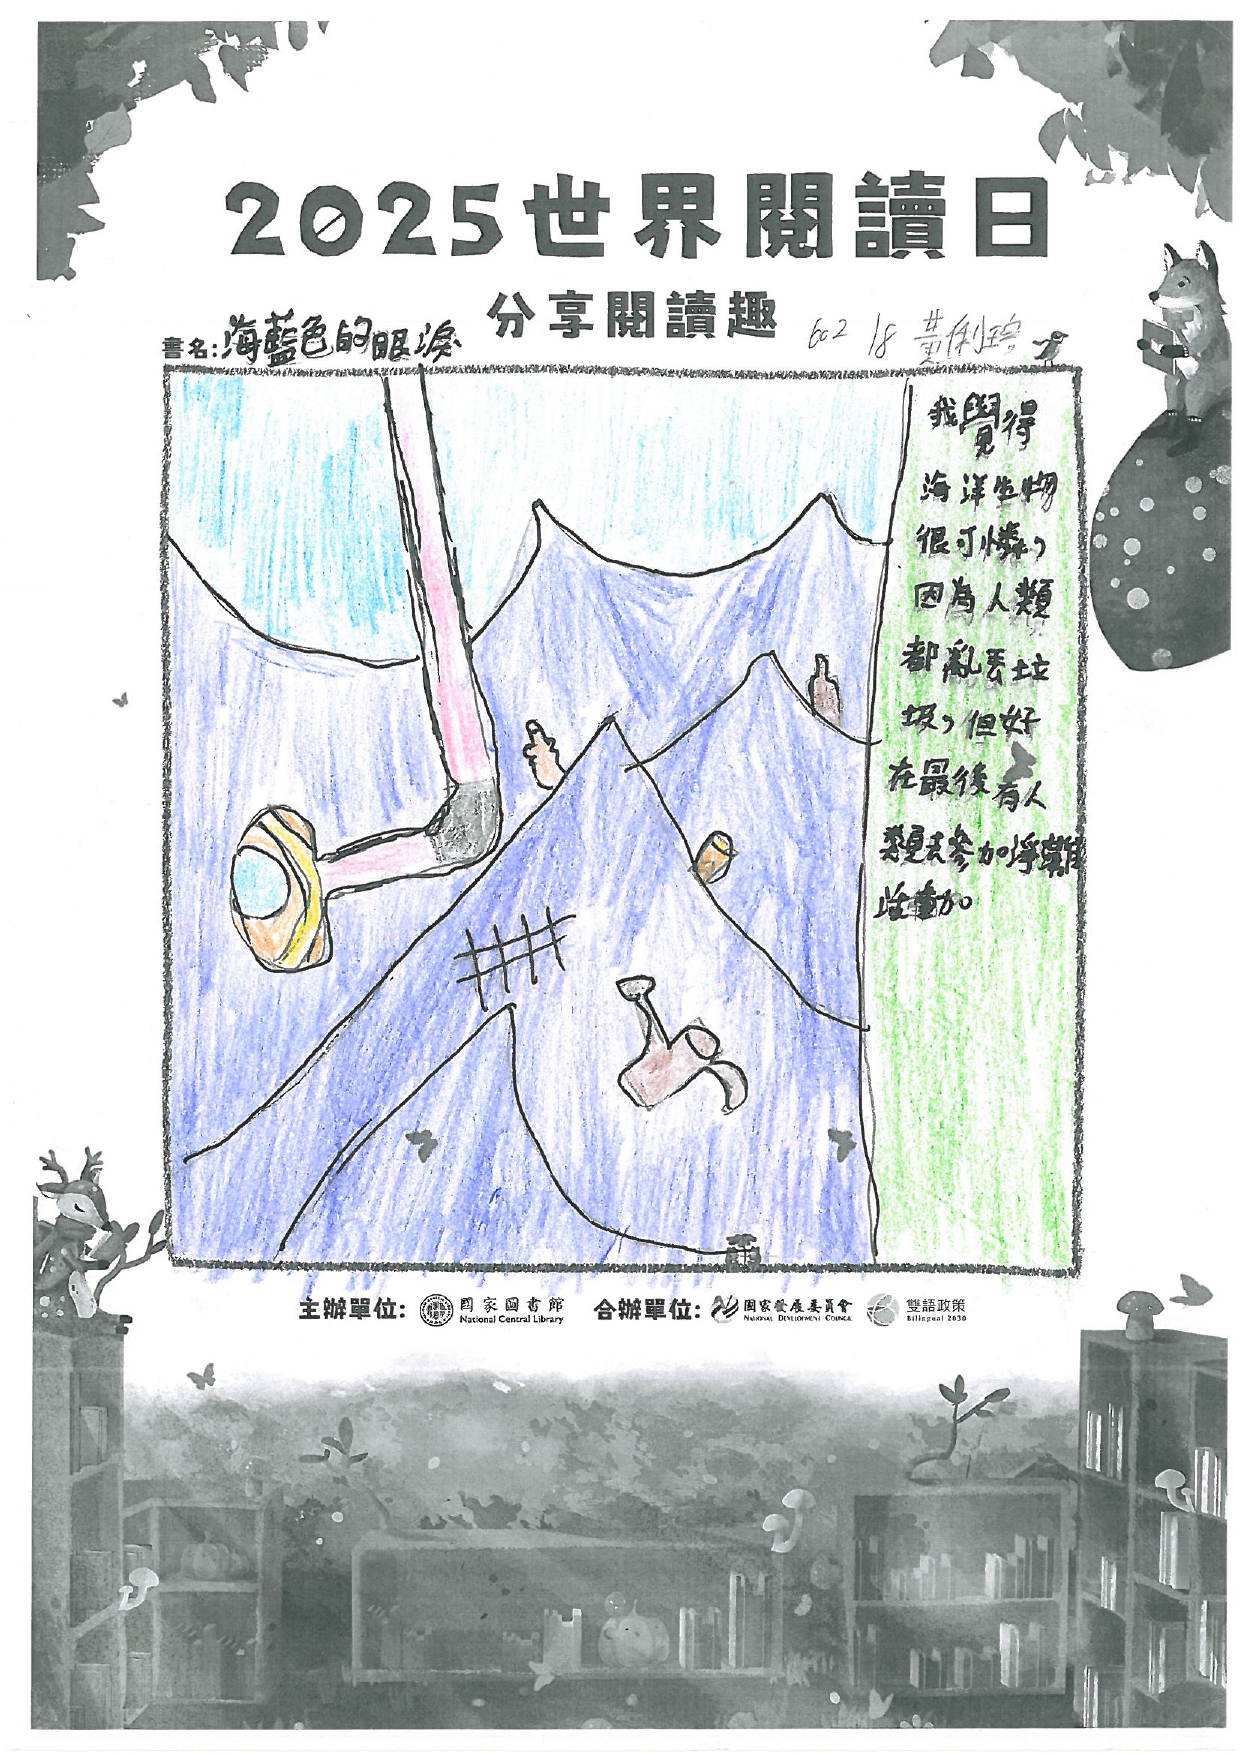 2025世界閱讀日
分享閱讀趣
書名:海藍色的眼淚
602 18 黃俐
我覺得
海洋生物
很可憐,
因為人類
都亂丟垃
圾,但好
在最後有人
類去參加淨灘
活動
主辦單位: 國家圖書館 合辦單位: 國家發展委員會 雙語政策
National Central Library NATIONAL DEVELOPMENT COUNCIL Bilingual 2030